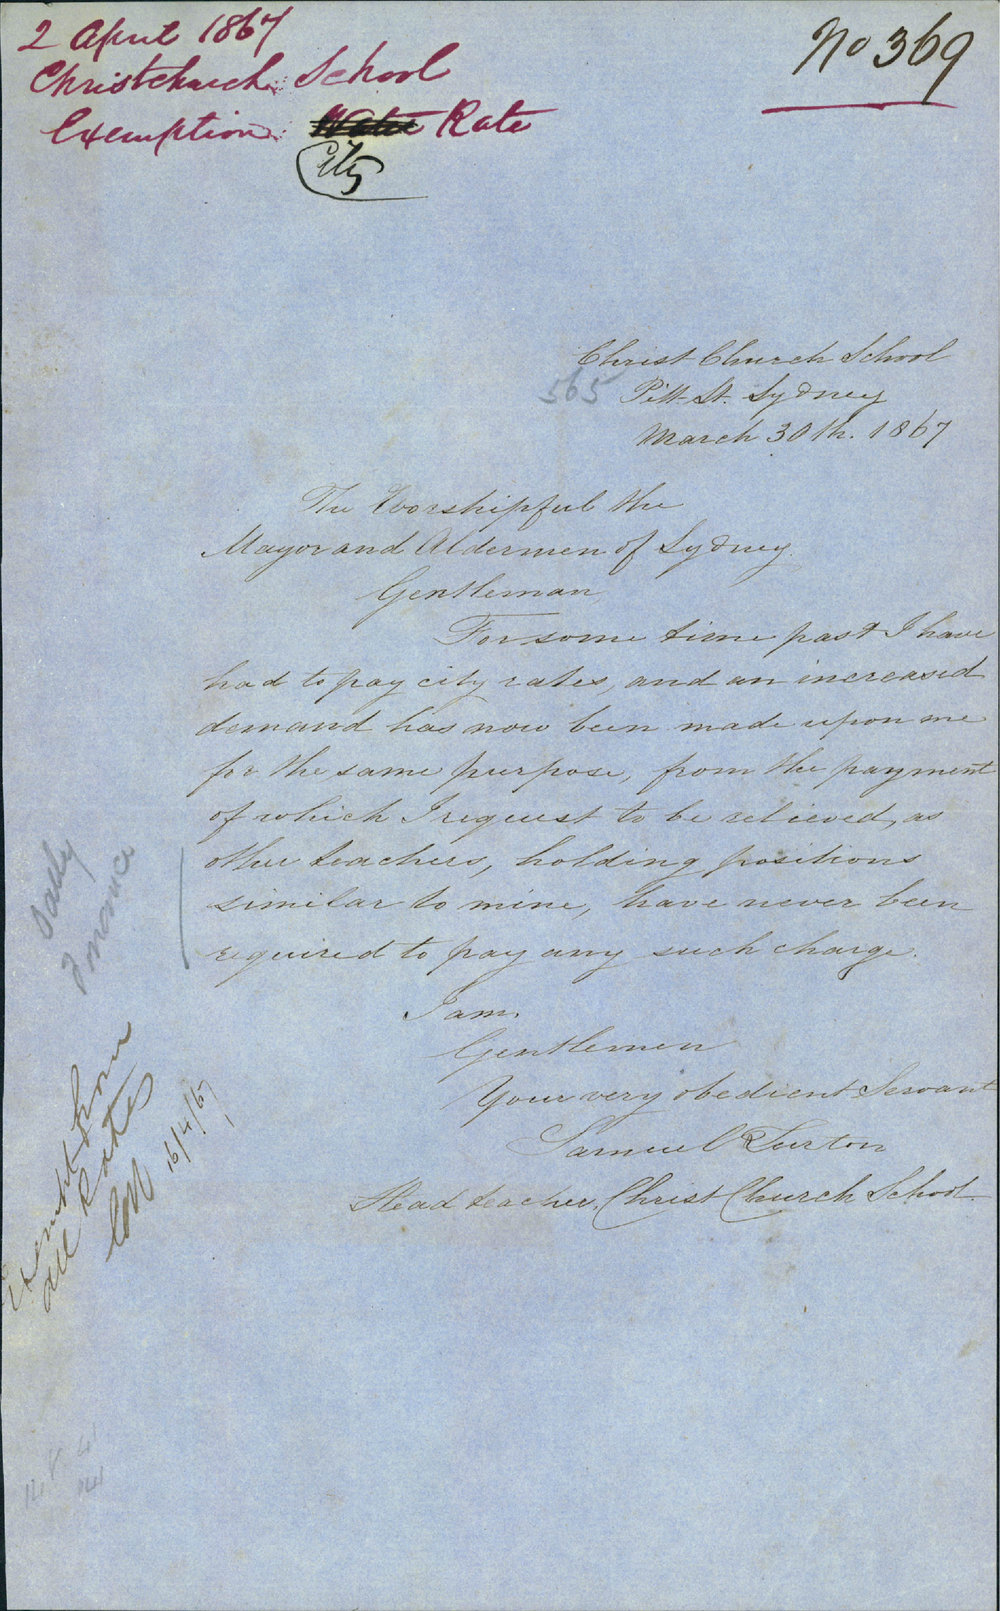 2 April 1867
Christchurch School
Exemption Water Rate
City
No 369
Christ Church School
565
Pitt St. Sydney
March 30th. 1867
The Worshipful the
Mayor and Aldermen of Sydney.
Gentleman,
For some time past I have
had to pay city rates, and an increased
demand has now been made upon me
for the same purpose, from the payment
of which I request to be relieved, as
other teachers, holding positions
similar to mine, have never been
required to pay any such charge.
I am,
Gentlemen
Your very obedient Servant
Samuel Turton
Head teacher, Christ Church School.
Finance
Exempt from
all Rates
16/4/67